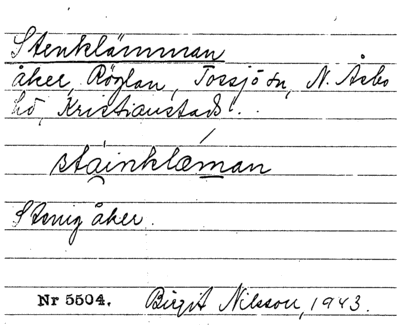 Stenklämman
åker, Röglan, Tossjö sn, N. Åsbo
hd, Kristianstads . .
stáinklæ̀man
Stenig åker.
Nr 5504. Birgit Nilsson, 1943.